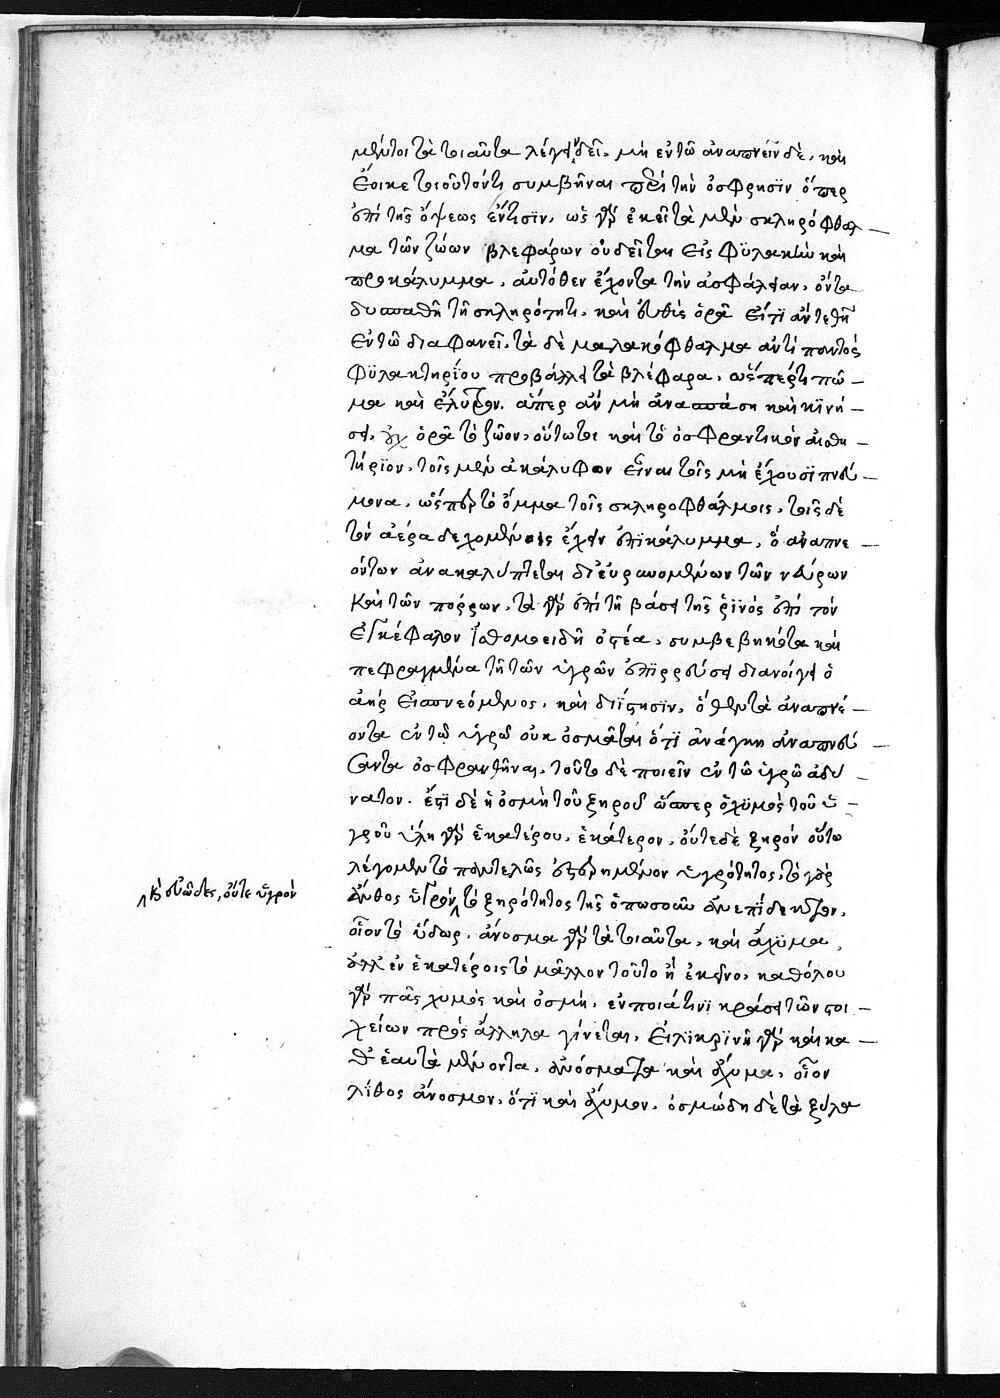 μέντοι τὰ τοιαῦτα λέγειν δεῖ, μὴ ἐν τῶ ἀναπνεῖν δὲ, καὶ
ἔοικε τοιοῦτόν τι συμβῆναι περὶ τὴν ὄσφρησϊν ὅπερ
ἐπὶ τῆς ὄψεως ἔστϊν, ὡς γὰρ ἐκεῖ τὰ μὲν σκληρόφθαλ
μα τῶν ζώων βλεφάρων οὐ δεῖται εἰς φϋλακὴν καὶ
προκάλυμμα, αὐτόθεν ἔχοντα τὴν ἀσφάλειαν, ὄντα
δυσπαθῆ τῆ σκληρότητι, καὶ εὐθὺς ὁρᾶ εἴ τϊ ἂν τεθῆ
ἐν τῶ διαφανεῖ, τὰ δὲ μαλακόφθαλμα ἀντὶ παντὸς
φϋλακτηρΐου προβάλλει τὰ βλέφαρα, ὥσπέρ τι πῶ
μα καὶ ἔλυτρον. ἅπερ ἂν μὴ ἀνασπάση καὶ κϊνή
σει, οὐχ ὁρᾶ τὸ ζῶον, οὕτω τοι καὶ τὸ ὀσφραντικὸν αἰσθη
τήρϊον, τοῖς μὲν ἀκάλυφον εἶναι τοῖς μὴ ἔχουσϊ πνεύ
μονα, ὥσπερ τὸ ὄμμα τοῖς σκληροφθάλμοις, τοῖς δὲ
τὸν ἀέρα δεχομένοις ἔχειν ἐπϊκάλυμμα, ὃ ἀναπνε
όντων ἀνακαλύπτεται διευρυνομένων τῶν νεύρων
καὶ τῶν πόρων, τὰ γὰρ ἐπὶ τῆ βάσει τῆς ῥϊνὸς ἐπὶ τὸν
ἐγκέφαλον ἰσθμοειδῆ ὀστέα, συμβεβηκότα καὶ
πεφραγμένα τῆ τῶν ὑγρῶν ἐπϊρρεύσει διανοίγει ὁ
ἀὴρ εἰσπνεόμενος, καὶ διΐστησϊν, ὅθεν τὰ ἀναπνέ
οντα ἐν τῶ ὑγρῶ οὐκ ὀσμᾶται ὅτϊ ἀνάγκη ἀναπνεύ
σαντα ὀσφρανθῆναι, τοῦτο δὲ ποιεῖν ἐν τῶ ὑγρῶ ἀδύ
νατον. ἔστϊ δὲ ἡ ὀσμὴ τοῦ ξηροῦ ὥσπερ ὁ χϋμὸς τοῦ ὑ
γροῦ ὕλη γὰρ ἑκατέρου, ἑκάτερον, οὔτε δὲ ξηρὸν οὕτω
λέγομεν τὸ παντελῶς ἐστερημένον ὑγρότητος, τὸ γὰρ
ἄνθος ὑγρὸν τὸ ξηρότητος τῆς ὁπωσοῦν ἀνεπίδεκτον,
<οὐκ εὐῶδες, οὔτε ὑγρὸν
οἷον τὸ ὕδωρ, ἄνοσμα γὰρ τὰ τοιαῦτα, καὶ ἄχϋμα,
ἀλλ' ἐν ἑκατέροις τὸ μᾶλλον τοῦτο ἢ ἐκεῖνο, καθόλου
γὰρ πᾶς χυμὸς καὶ ὀσμὴ, ἐν ποιᾶ τινϊ κράσει τῶν στοι
χείων πρὸς ἄλληλα γίνεται, εἰλϊκρϊνῆ γὰρ καὶ κα
θ' ἑαυτὰ μένοντα, ἄνοσμά τε καὶ ἄχυμα, οἷον
λΐθος ἄνοσμον, ὅτϊ καὶ ἄχυμον, ὀσμώδη δὲ τὰ ξύλα